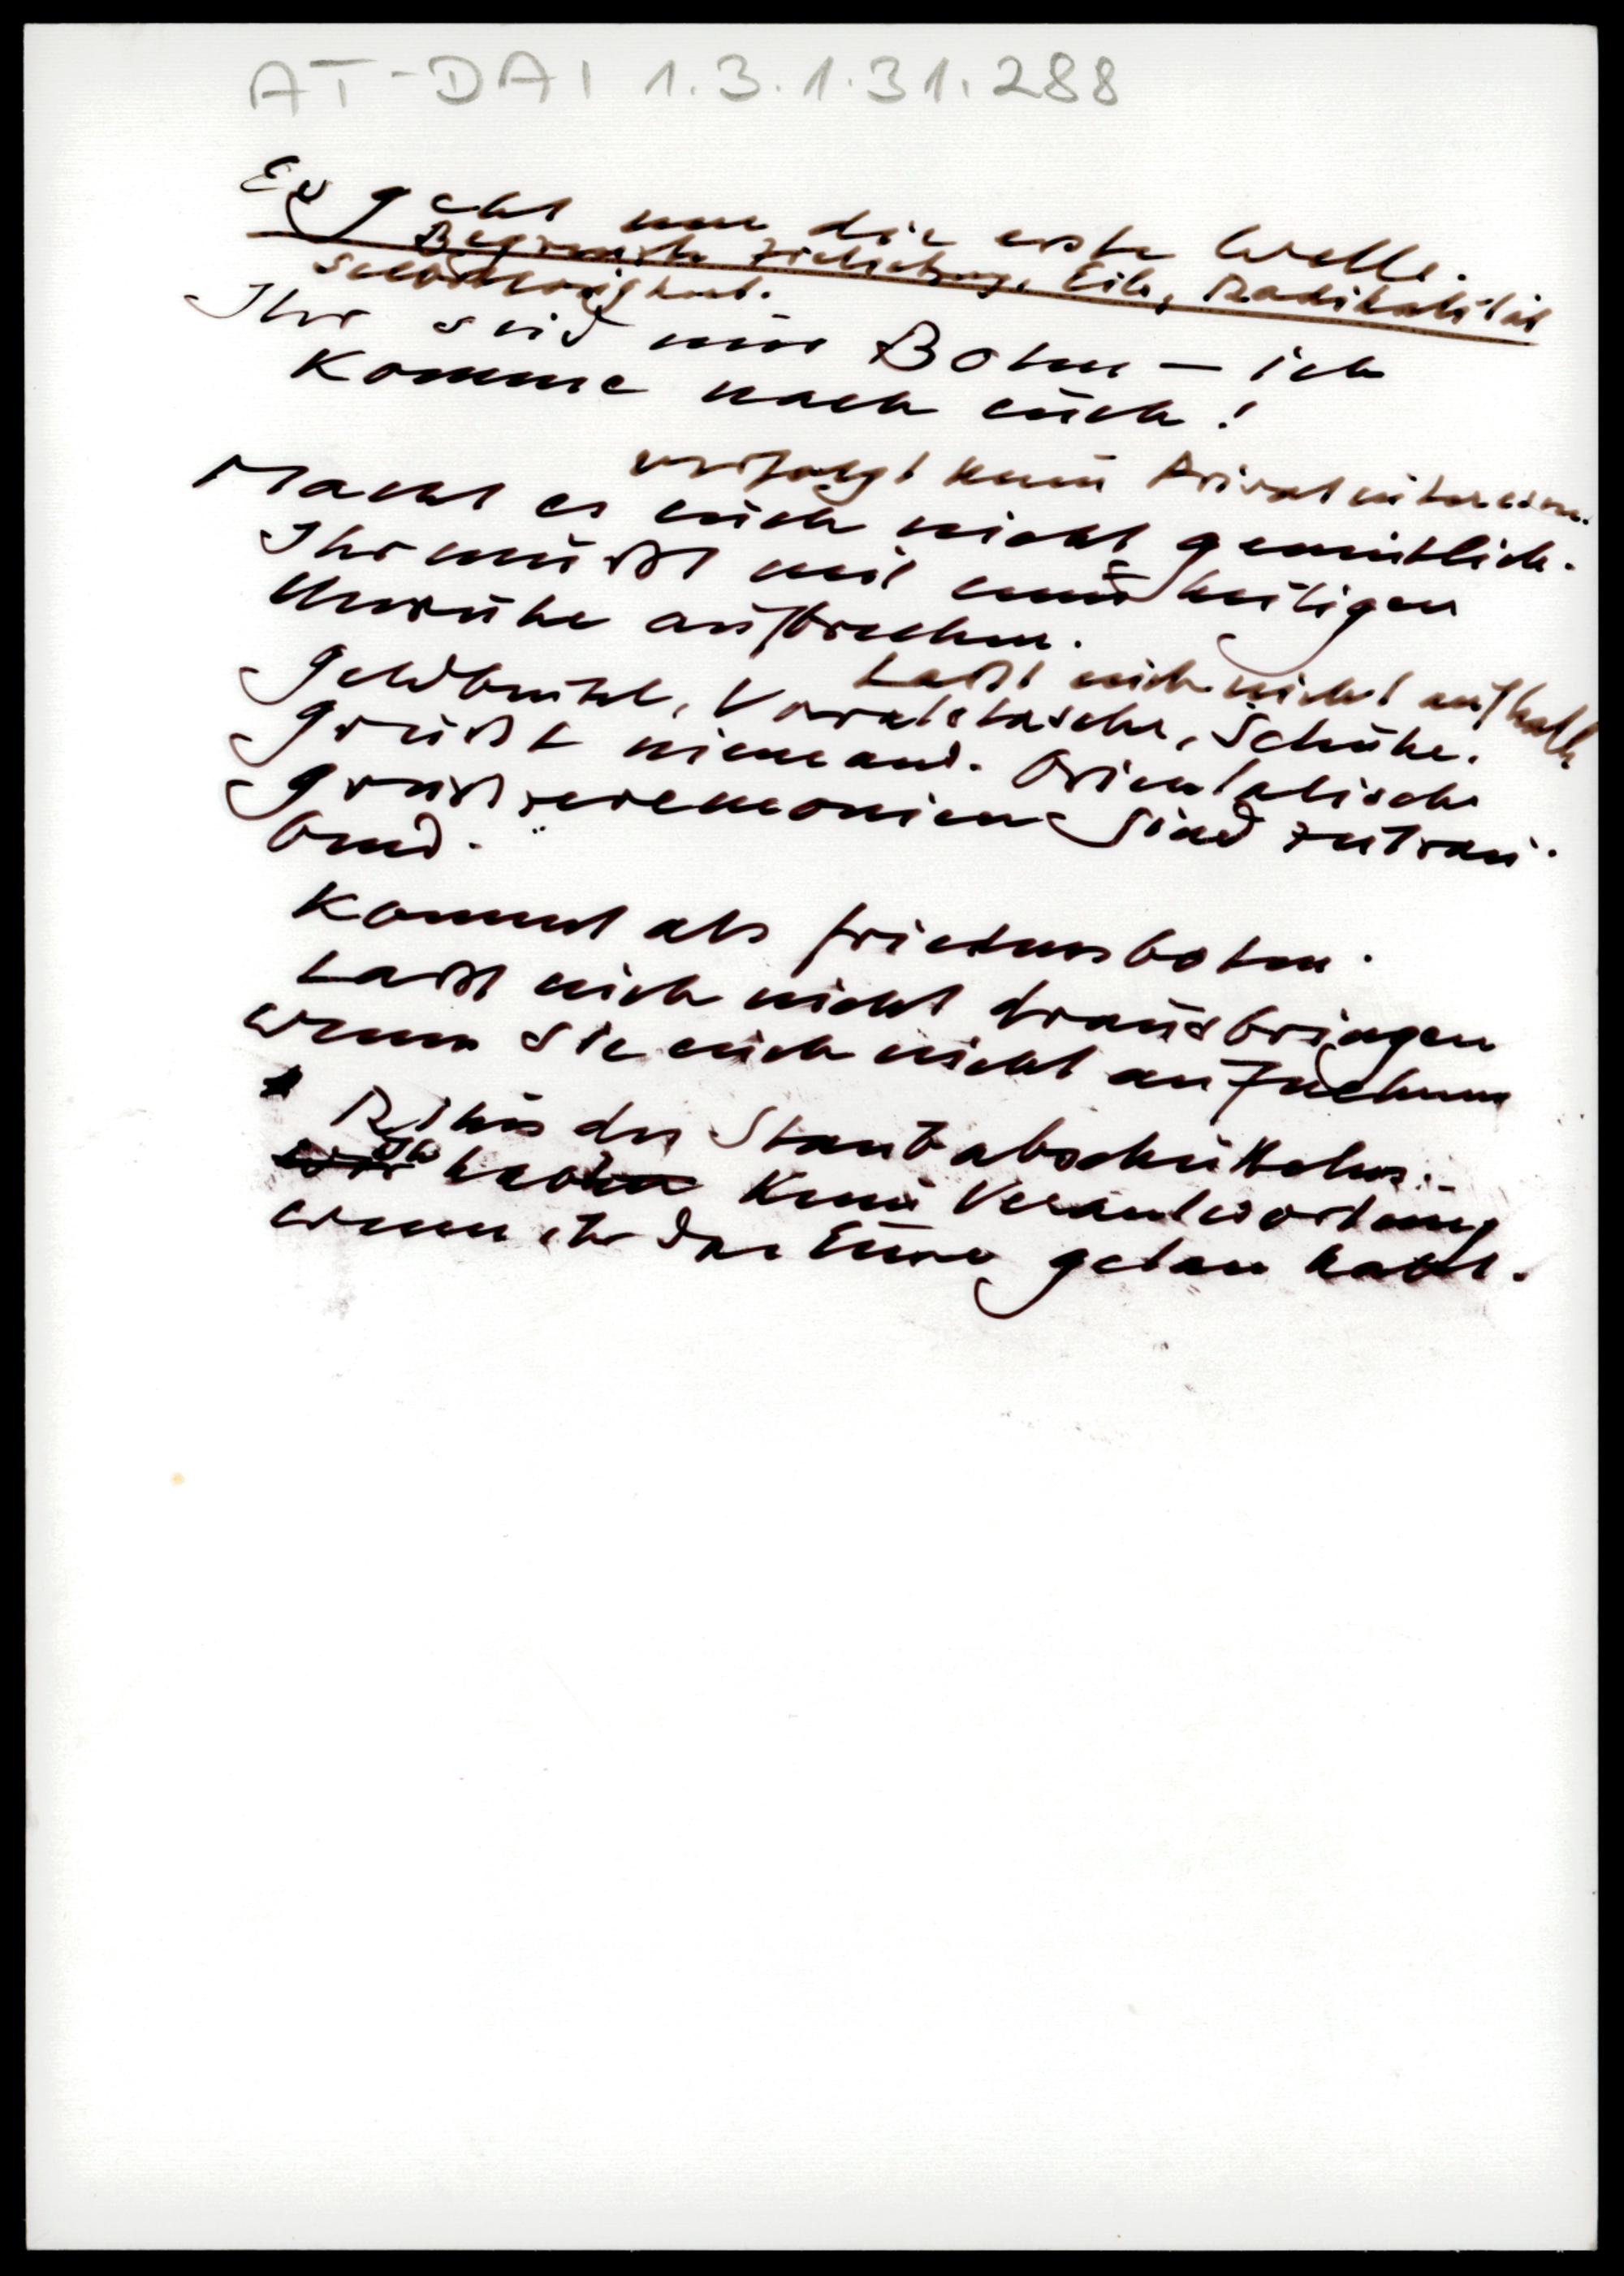 AT-DAI 1.3.1.31.288
Es geht um die erste Welle.
Begrenzte Zielsetzung, Eile, Radikalität
Ihr seid nur Boten – ich
komme nach euch!
verfolgt keine Privatinteressen.
Macht es euch nicht gemütlich.
Ihr müßt mit einer heiligen
Unruhe aufbrechen.
Laßt euch nicht aufhalten
Geldbeutel, Vorratstasche, Schuhe.
Grüßt niemand. Orientalische
Grußzeremonien sind zeitrau-
bend.
Kommt als Friedensboten.
Laßt euch nicht drausbringen
wenn sie euch nicht aufnehmen
Ritus des Staubabschüttelns:
Ihr habt keine Verantwortung
wenn ihr das Eure getan habt.